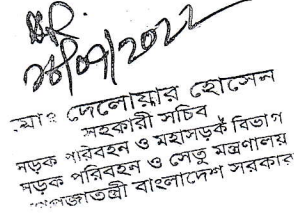 ২০২২
মোঃ দেলোয়ার হোসেন
সহকারী সচিব
সড়ক পরিবহন ও মহাসড়ক বিভাগ
সড়ক পরিবহন ও সেতু মন্ত্রণালয়
গণপ্রজাতন্ত্রী বাংলাদেশ সরকার